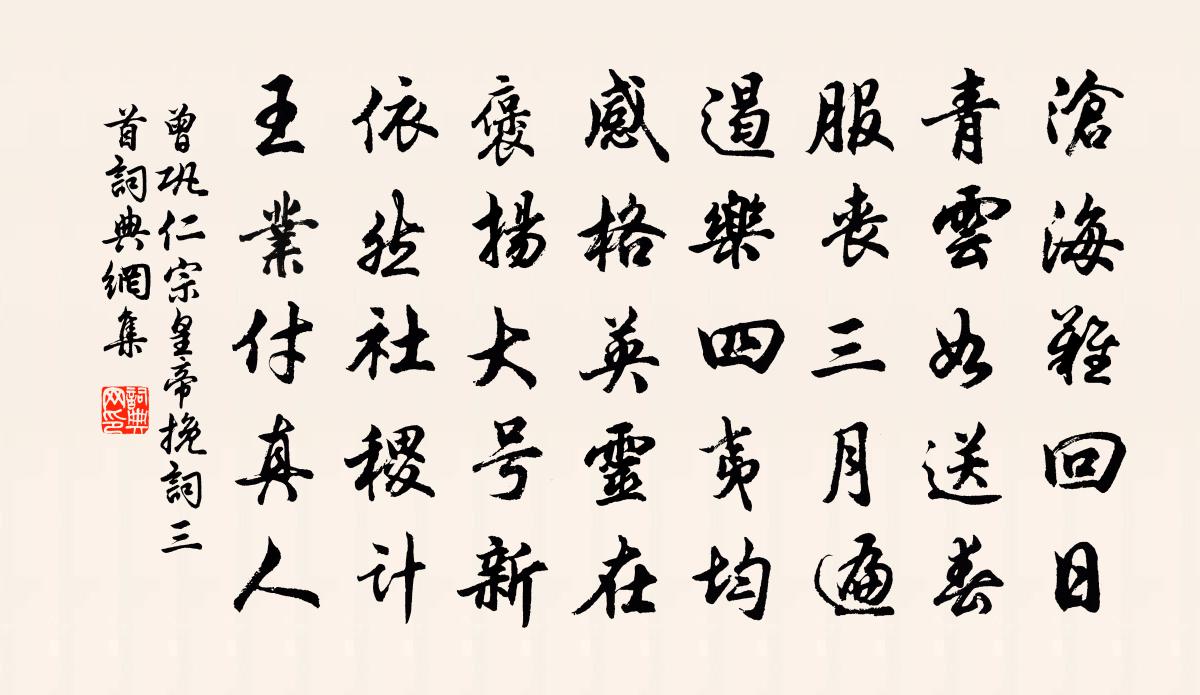 滄海難回日
青雲如送春
服喪三月遍
遏樂四夷均
感格英靈在
褒揚大号新
依然社稷計
王業付真人
曾巩仁宗皇帝挽詞三
首詞典網集
詞典
网印